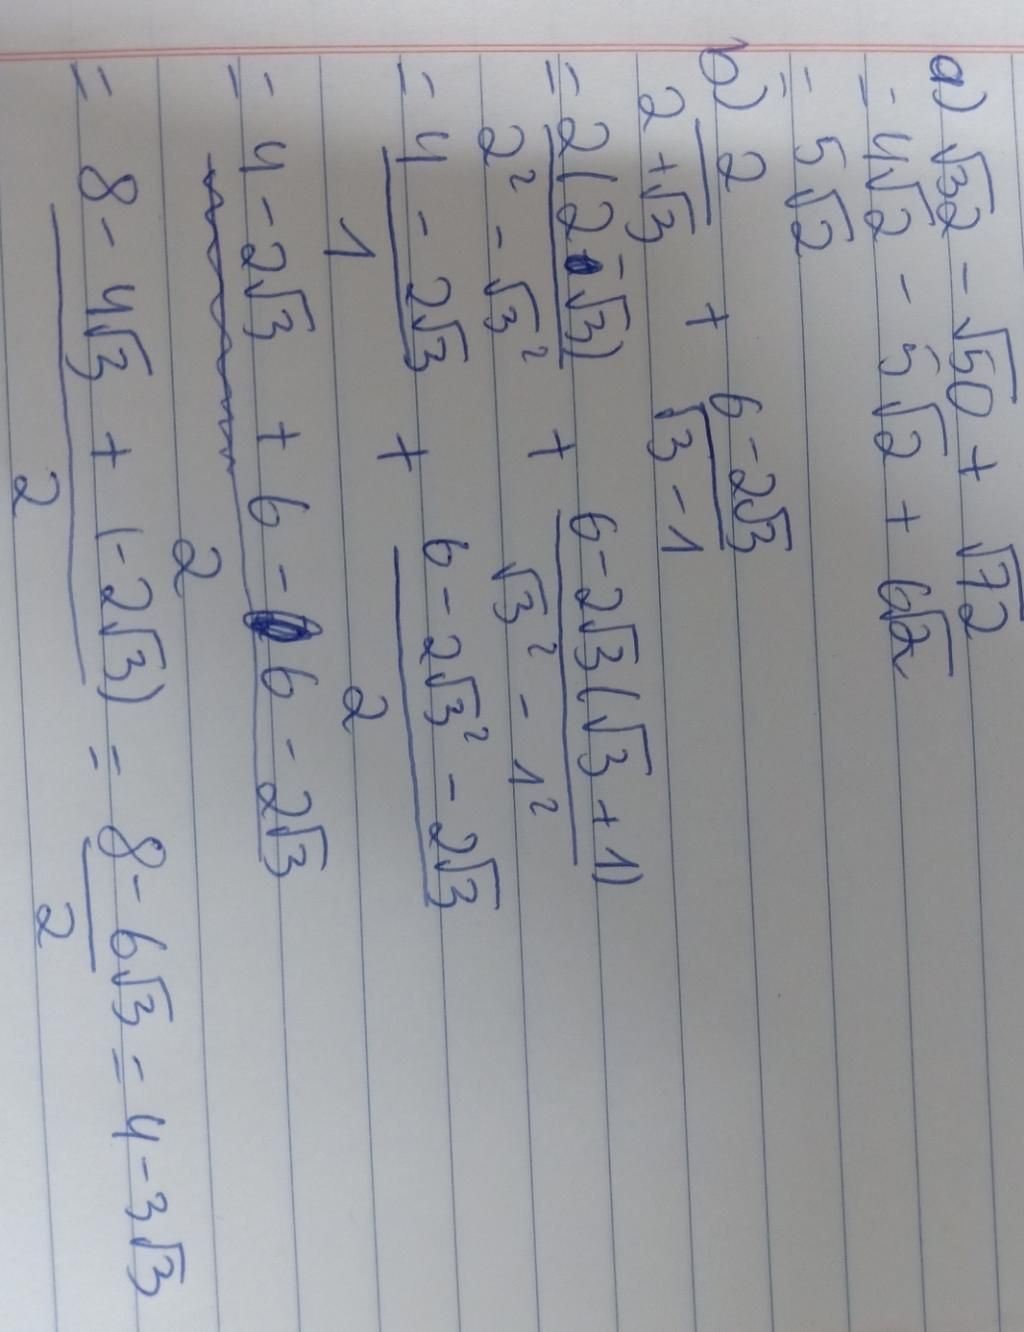 a) √32 - √50 + √72
= 4√2 - 5√2 + 6√2
= 5√2
b) 2/(2+√3) + (6-2√3)/(√3-1)
= 2(2-√3)/(2² - √3²) + (6-2√3(√3+1))/(√3² - 1²)
= (4 - 2√3)/1 + (6 - 2√3² - 2√3)/2
= 4 - 2√3 + (6 - 6 - 2√3)/2
= (8 - 4√3 + (-2√3))/2 = (8 - 6√3)/2 = 4 - 3√3